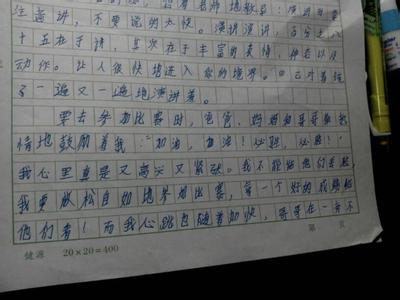 注意讲，不要说的太快。演讲演讲，百分之八
十五在于讲，其次在于丰富的表情，神态以及
动作。让人很快地进入你的境界。"已对着镜
了一遍又一遍地演讲着。
要去参加比赛时，爸爸、妈妈和哥哥都热
情地鼓励着我："加油，加油！必胜，必胜！"
我心里真是又高兴又紧张。我不能给他们丢脸，
我要放松自如地参加比赛，拿一个好的成绩给
他们看！而我心跳也随着加快，哥哥在一旁不
健源 20×20=400 第 页